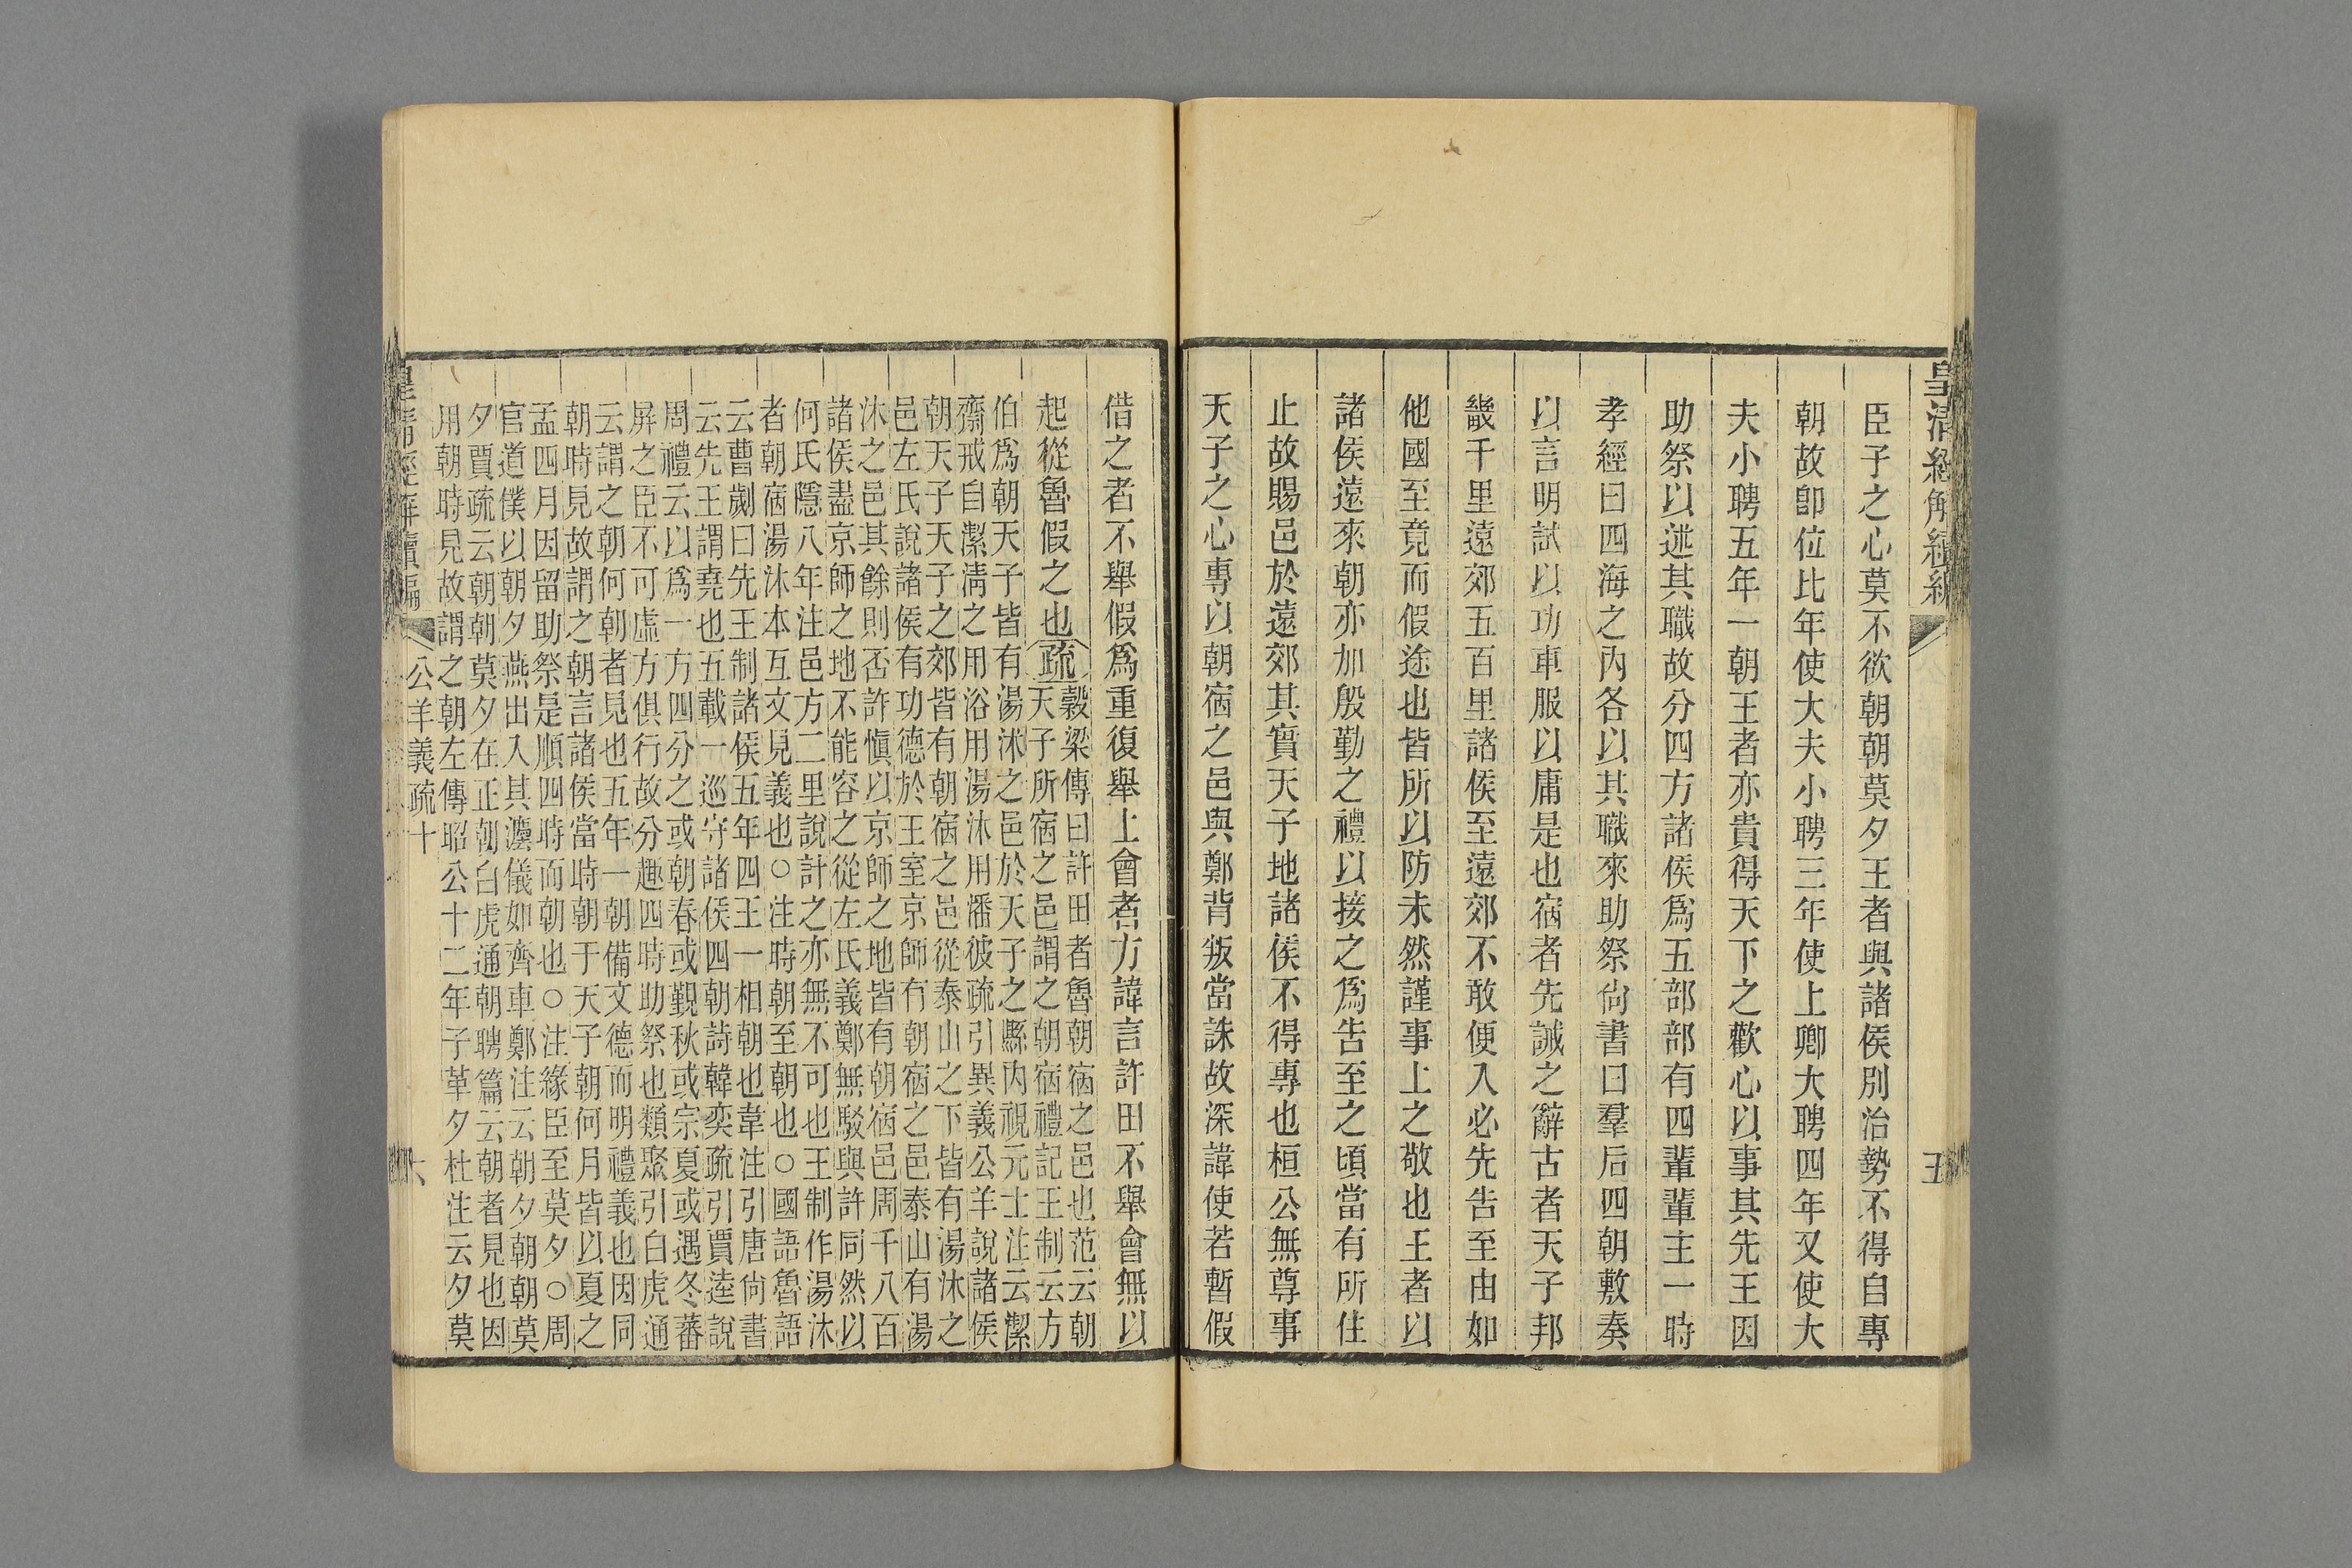 皇清經解續編
五
臣子之心莫不欲朝朝莫夕王者與諸侯別治勢不得自專
朝故卽位比年使大夫小聘三年使上卿大聘四年又使大
夫小聘五年一朝王者亦貴得天下之歡心以事其先王因
助祭以述其職故分四方諸侯爲五部部有四輩輩主一時
孝經曰四海之內各以其職來助祭尙書曰羣后四朝敷奏
以言明試以功車服以庸是也宿者先誡之辭古者天子邦
畿千里遠郊五百里諸侯至遠郊不敢便入必先告至由如
他國至竟而假途也皆所以防未然謹事上之敬也王者以
諸侯遠來朝亦加殷勤之禮以接之爲告至之頃當有所住
止故賜邑於遠郊其實天子地諸侯不得專也桓公無尊事
天子之心專以朝宿之邑與鄭背叛當誅故深諱使若暫假
借之者不舉假爲重復舉上會者方諱言許田不舉會無以
起從魯假之也
疏
穀梁傳曰許田者魯朝宿之邑也范云朝
天子所宿之邑謂之朝宿禮記王制云方
伯爲朝天子皆有湯沐之邑於天子之縣內視元士注云潔
齋戒自潔淸之用浴用湯沐用潘彼疏引異義公羊說諸侯
朝天子天子之郊皆有朝宿之邑從泰山之下皆有湯沐之
邑左氏說諸侯有功德於王室京師有朝宿之邑泰山有湯
沐之邑其餘則否許愼以京師之地皆有朝宿邑周千八百
諸侯盡京師之地不能容之從左氏義鄭無駁與許同然以
何氏隱八年注邑方二里說計之亦無不可也王制作湯沐
者朝宿湯沐本互文見義也○注時朝至朝也○國語魯語
云曹劌曰先王制諸侯五年四王一相朝也韋注引唐尙書
云先王謂堯也五載一巡守諸侯四朝詩韓奕疏引賈逵說
周禮云以爲一方四分之或朝春或覲秋或宗夏或遇冬蕃
屏之臣不可虛方俱行故分趣四時助祭也類聚引白虎通
云謂之朝何朝者見也五年一朝備文德而明禮義也因同
朝時見故謂之朝言諸侯當時朝于天子朝何月皆以夏之
孟四月因留助祭是順四時而朝也○注緣臣至莫夕○周
官道僕以朝夕燕出入其灋儀如齊車鄭注云朝夕朝朝莫
夕賈疏云朝朝莫夕在正朝白虎通朝聘篇云朝者見也因
用朝時見故謂之朝左傳昭公十二年子革夕杜注云夕莫
皇淸經解續編
公羊義疏十
六